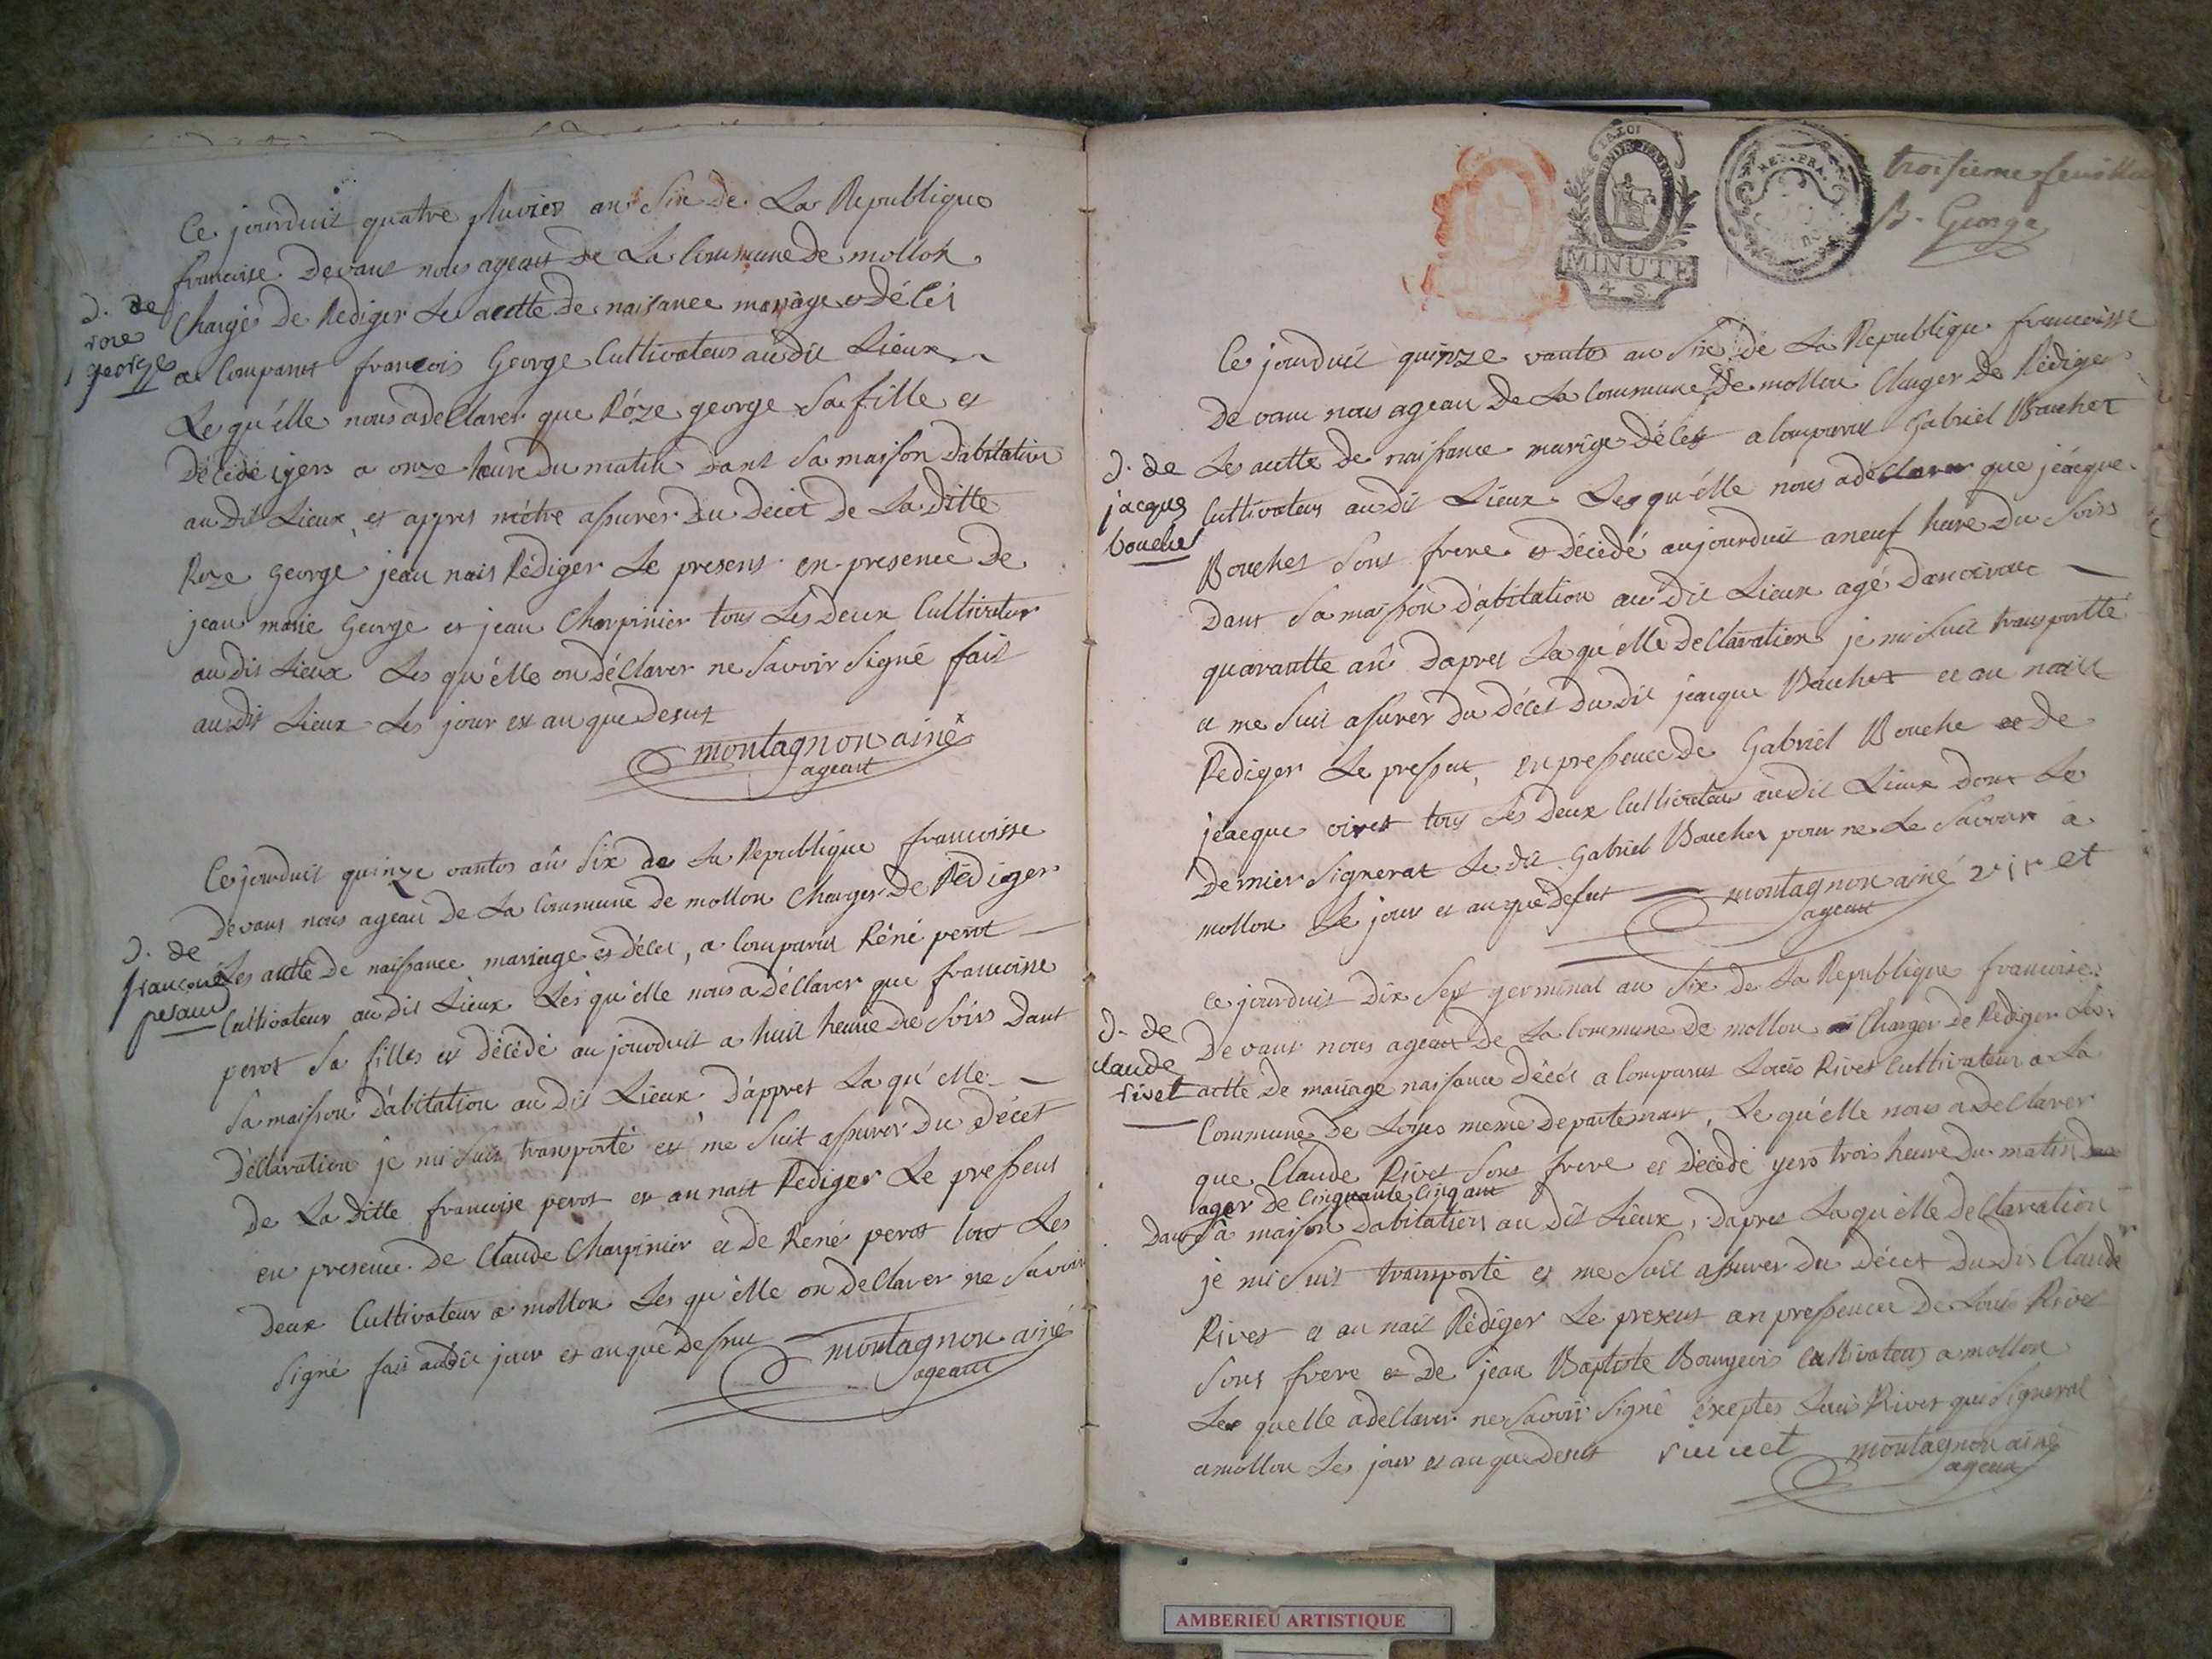 Ce jourduit quatre pluvies an Six De La Republique
francoise Devant nous ageant De La Commune De mollon
Chargé De Rediger Le actte De naisance mariage et Décès
a Comparut francois George Cultivateur audit Lieux
Lequ'élle nous a deClarer que Róze george Sa fille et
Décédé iyers a onze heure Du matin Dans Sa maison D'abitation
au Dit Lieux et appres m'éttre assurer Du Décet De La Ditte
Roze George jeau nais Rédiger Le present en presence De
jean marie George et jean Charpinier tous Les Deux Cultivateur
audit Lieux Les qu'élle on déClarer ne Savoir Signé fait
au Dit Lieux Les jour et an que Desut
montagnon ainé
ageant
D. de
roze
george
Ce jourduit quinze vantos an Six de La Republique francoisse
Devant nous ageau De La Commune De mollon Charger De Rédiger
Les actte De naissance mariage et Décet, a Comparut Réné perot
Cultivateur au Dit Lieux Les qu'elle nous a DéClarer que francoisse
perot Sa filles et Décédé au jourduit a huit heure De Soirs Dant
Sa maisson D'abitation au Dit Lieux D'appret La qu'elle
DéClaration je mi Suis transporté et me Suit assurer Du Décet
De La Ditte francoise perot et an nait Rediger Le pressent
en presence De Claude Charpinier et De René perot tous Les
Deux Cultivateur a mollon Les qu'élle on DeClarer ne Savoir
Signé fait audit jour et an que Dessut
montagnon ainé
ageant
D. de
francoise
peraud
troisieme feuille
George
MINUTE
4 S.
REP. FRA.
Ce jourduit quinze vantos an Six de La Republique francoisse
De vant nous ageau De La Commune De mollon Charger De Rédiger
Les actte De naissance marige Décet a Comparut Gabriel Bouchet
Cultivateur au Dit Lieux Lesqu'élle nous a déClarer que jéacque
Bouchet Sont frere et Décédé aujourduit a neuf heure Du Soirs
Dant Sa maisson D'abitation au Dit Lieux agé D'anviront
quarantte an D'apret La qu'élle DeClaration je mi Suit transportté
et me Suit assurer Du Décet Du Dit jeacque Bouchet et an nait
Rediger Le pressent, en pressence De Gabriel Bouche et De
jéacque viret tous Les Deux Cultivateur au Dit Lieux Dont Le
Dernier Signerat Le Dit Gabriel Bouchet pour ne Le Savoir a
mollon Le jour et an que Desut
montagnon ainé viret
ageant
D. de
jacques
bouchet
Ce jourduit Dix Sept germinal an Six De La Republique francoise
De vant nous ageant De La Commune De mollon Charger De Rediger Les
actte De mariage naissance Décét a Comparut Louis Rivet Cultivateur a La
Commune De Loyes meme Departemant, Le qu'élle nous a deClarer
que Claude Rivet Sont frere et Décédé yers trois heure Du matin
ager De Cinquante Cinq ant
Dant Sa maison D'abitation au Dit Lieux, D'apret La qu'élle DeClaration
je mi Suit transporté et me Suit assurer Du Décet Du Dit Claude
Rivet et an nait Rédiger Le present an pressence De Louis Rivet
Sont frere et De jean Baptiste Bourgeois Cultivateur a mollon
Les quelle a deClarer ne Savoir Signé exceptes Louis Rivet qui Signerat
a mollon Les jour et an que Desut
montagnon ainé
ageant
D. de
claude
rivet
AMBERIEU ARTISTIQUE